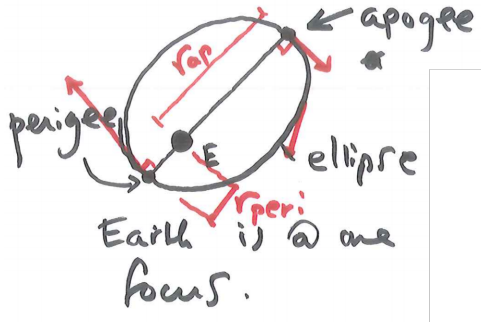 apogee
rap
perigee
E
ellipse
rperi
Earth is @ one
focus.